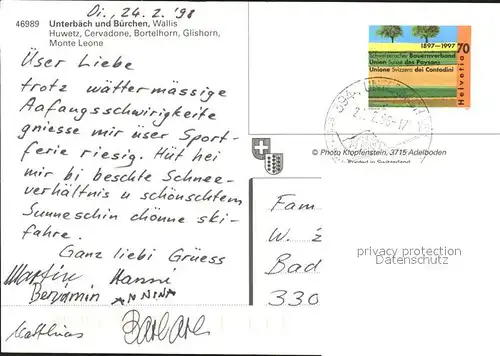 Di., 24.2.'98
46989 Unterbäch und Bürchen, Wallis
Huwetz, Cervadone, Bortelhorn, Glishorn,
Monte Leone
Üser Liebe
trotz wättermässige
Aafangsschwirigkeite
gniesse mir üser Sport-
ferie riesig. Hüt hei
mir bi beschte Schnee-
verhältnis u schönschtem
Sunneschin chönne ski-
fahre.
Ganz liebi Grüess
Martin Hanni
Benjamin ANNINA
Matthias Barbara
1897-1997 70
Schweizerischer Bauernverband
Union Suisse des Paysans
Unione Svizzera dei Contadini
Helvetia
© Photo Klopfenstein, 3715 Adelboden
Printed in Switzerland
Fam
W.
Bad
330
privacy protection
Datenschutz